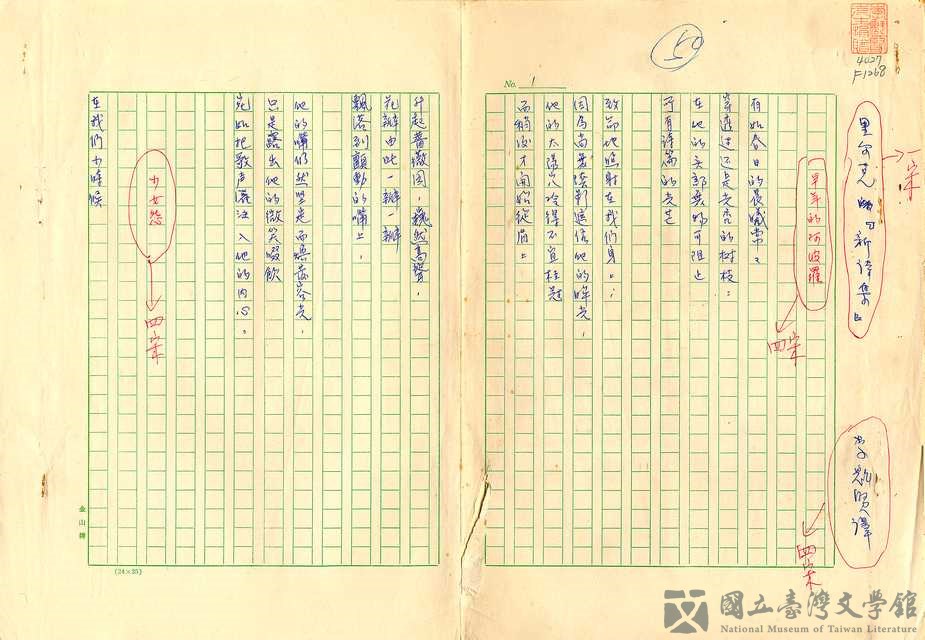 4027
F1268
50
No. 1
里尔克的「新詩集」
一宋
李魁賢譯
四宋
早年的阿波羅
四宋
有如春日的晨曦常常
穿透过还是光禿的樹枝:
在他的头部無物可阻止
所有詩篇的光芒
致命地照射在我們身上;
因為尚無陰影遮住他的眸光,
他的太陽穴冷得不宜桂冠
而稍後才開始從眉上
升起薔薇園,巍然高聳,
花瓣由此一瓣一瓣
飄落到顫動的嘴上,
他的嘴仍然坚定而
只是露出他的微笑啜飲
宛如把歌声灌注入他的内心。
少女怨
四宋
在我們小時候
金山牌
(24×25)
國立臺灣文學館
National Museum of Taiwan Literature